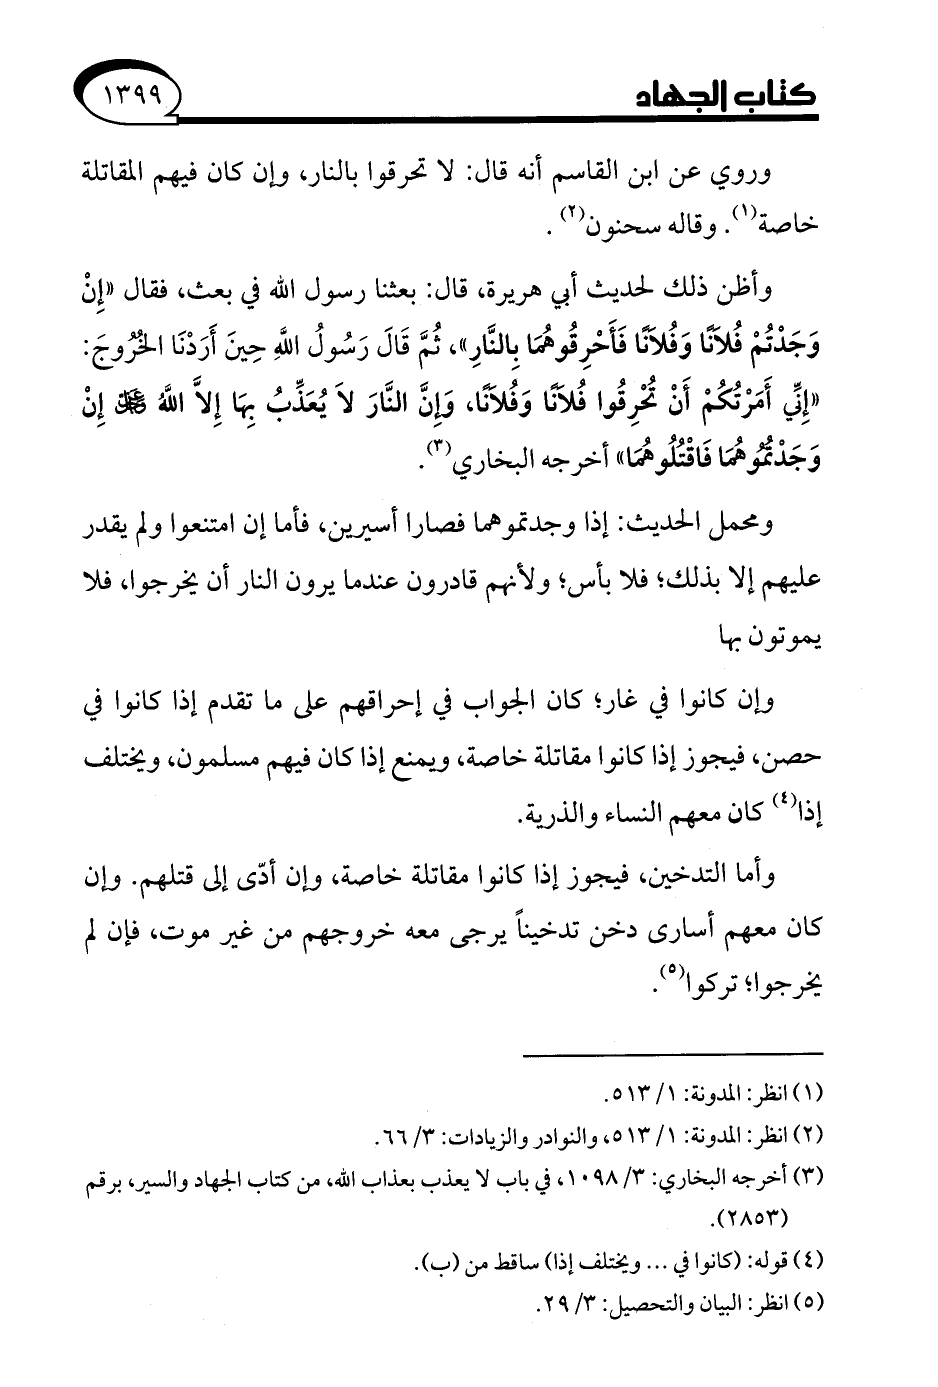 كتاب الجهاد
١٣٩٩
وروي عن ابن القاسم أنه قال: لا تحرقوا بالنار، وإن كان فيهم المقاتلة
خاصة(١). وقاله سحنون(٢) .
وأظن ذلك لحديث أبي هريرة، قال: بعثنا رسول الله في بعث، فقال «إِنْ
وَجَدْتُمْ فُلاَنًا وَفُلاَنًا فَأَحْرِقُوهُمَا بِالنَّارِ»، ثُمَّ قَالَ رَسُولُ اللَّهِ حِينَ أَرَدْنَا الخُرُوجَ:
«إِنِّي أَمَرْتُكُمْ أَنْ تُحْرِقُوا فُلاَنًا وَفُلاَنًا، وَإِنَّ النَّارَ لاَ يُعَذِّبُ بِهَا إِلاَّ اللَّهُ ﷻ إِنْ
وَجَدْتُمُوهُمَا فَاقْتُلُوهُمَا» أخرجه البخاري(٣).
ومحمل الحديث: إذا وجدتموهما فصارا أسيرين، فأما إن امتنعوا ولم يقدر
عليهم إلا بذلك؛ فلا بأس؛ ولأنهم قادرون عندما يرون النار أن يخرجوا، فلا
يموتون بها
وإن كانوا في غار؛ كان الجواب في إحراقهم على ما تقدم إذا كانوا في
حصن، فيجوز إذا كانوا مقاتلة خاصة، ويمنع إذا كان فيهم مسلمون، ويختلف
إذا(٤) كان معهم النساء والذرية.
وأما التدخين، فيجوز إذا كانوا مقاتلة خاصة، وإن أدّى إلى قتلهم. وإن
كان معهم أسارى دخن تدخيناً يرجى معه خروجهم من غير موت، فإن لم
يخرجوا؛ تركوا(٥).
(١) انظر: المدونة: ١/ ٥١٣.
(٢) انظر: المدونة: ١/ ٥١٣، والنوادر والزيادات: ٣/ ٦٦.
(٣) أخرجه البخاري: ٣/ ١٠٩٨، في باب لا يعذب بعذاب الله، من كتاب الجهاد والسير، برقم
(٢٨٥٣).
(٤) قوله: (كانوا في ... ويختلف إذا) ساقط من (ب).
(٥) انظر: البيان والتحصيل: ٣/ ٢٩.